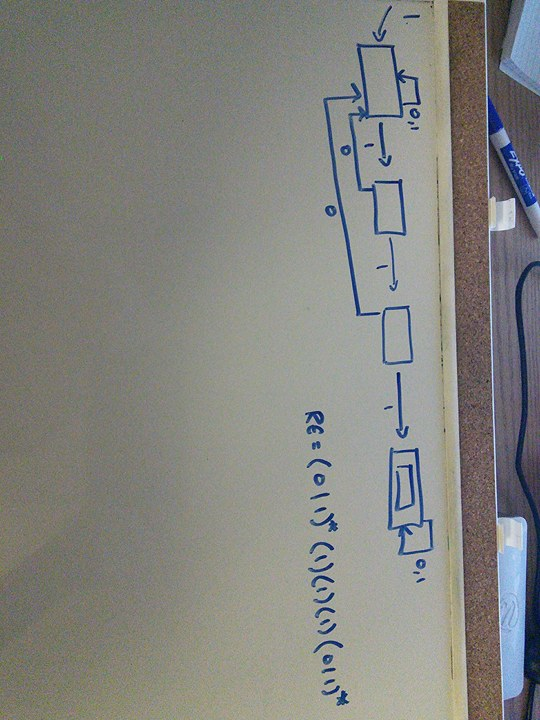 1
0,1
1
0
1
0
1
0,1
RE = (0|1)* (1)(1)(1)(0|1)*
EXPO